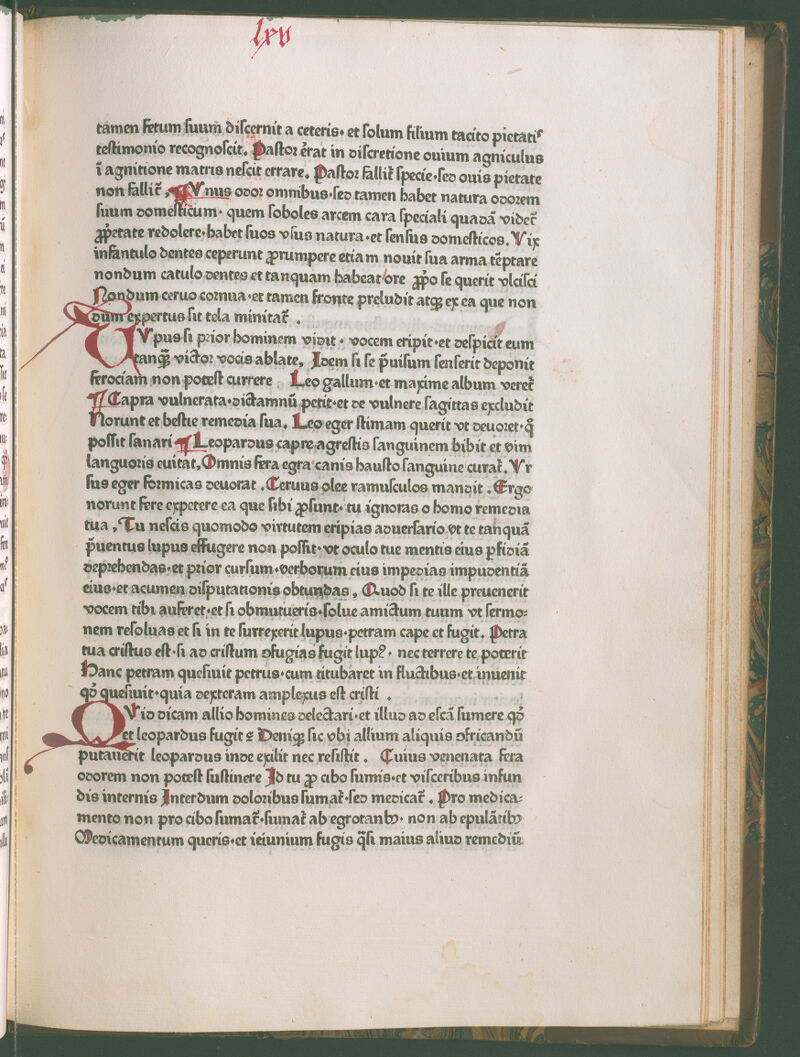 lxv
tamen fetum suum discernit a ceteris· et solum filium tacito pietatis
testimonio recognoscit. Pastor errat in discretione ouium agniculus
ī agnitione matris nescit errare. Pastor fallit᷑ specie·sed ouis pietate
non fallit᷑. ¶ Vnus odor omnibus·sed tamen habet natura odorem
suum domesticum· quem soboles arcem cara speciali quadā videt᷑
ꝓpetate redolere·habet suos vsus natura·et sensus domesticos. Vix
infantulo dentes ceperunt ꝓrumpere etiam nouit sua arma tēptare
nondum catulo dentes et tanquam habeat ore ꝓpo se querit vlcisci
Nondum ceruo cornua·et tamen fronte preludit atqꝫ ex ea que non
dum expertus sit tela minitat᷑ .
LVpus si prior hominem vidit · vocem eripit·et despicit eum
tanqꝫ victor vocis ablate. Idem si se p̄uisum senserit deponit
ferociam non potest currere Leo gallum·et maxime album veret᷑
¶ Capra vulnerata·dictamnū petit·et de vulnere sagittas excludit
Norunt et bestie remedia sua. Leo eger stimam querit vt deuoret·q̄
possit sanari ¶ Leopardus capre agrestis sanguinem bibit et vim
languoris euitat. Omnis fera egra canis hausto sanguine curat᷑. Vr
sus eger formicas deuorat . Ceruus olee ramusculos mandit . Ergo
norunt fere expetere ea que sibi ꝓsunt· tu ignoras o homo remedia
tua . Tu nescis quomodo virtutem eripias aduersario vt te tanquā
p̄uentus lupus effugere non possit·vt oculo tue mentis eius ꝑfidiā
deprehendas·et prior cursum·verborum eius impedias impudentiā
eius·et acumen disputationis obtundas . Quod si te ille preuenerit
vocem tibi auferet·et si obmutueris·solue amictum tuum vt sermo⸗
nem resoluas et si in te surrexerit lupus·petram cape et fugit. Petra
tua cristus est·si ad cristum ꝯfugias fugit lupꝰ· nec terrere te poterit
Hanc petram quesiuit petrus·cum titubaret in fluctibus·et inuenit
qd̄ quesiuit·quia dexteram amplexus est cristi .
QVid dicam allio homines delectari·et illud ad escā sumere qd̄
et leopardus fugit ꝛ Deniqꝫ sic vbi allium aliquis ꝯfricandū
putauerit leopardus inde exilit nec resistit . Cuius venenata fera
odorem non potest sustinere Id tu ꝓ cibo sumis·et visceribus infun
dis internis Interdum doloribus sumat᷑·sed medicat᷑ . Pro medica⸗
mento non pro cibo sumat᷑·sumat᷑ ab egrotantibꝰ· non ab epulātibꝰ
Medicamentum queris·et ieiunium fugis q̄si maius aliud remediū